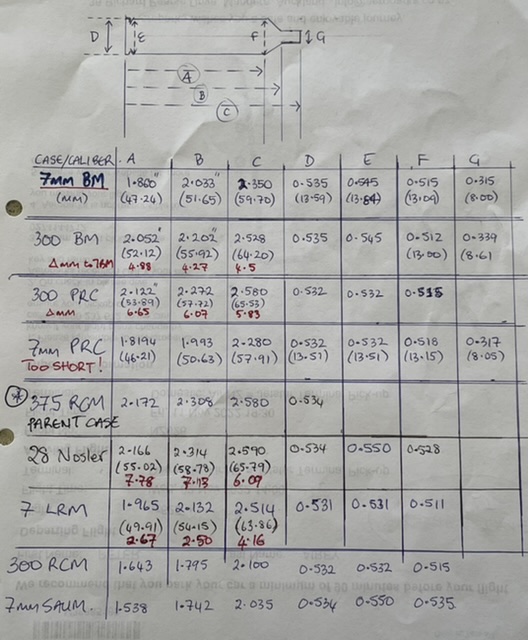 D E F G
A
B
C
CASE/CALIBER A B C D E F G
7mm BM 1.860" 2.033" 2.350 0.535 0.545 0.515 0.315
(mm) (47.24) (51.65) (59.70) (13.59) (13.84) (13.09) (8.00)
300 BM 2.052" 2.202" 2.528 0.535 0.545 0.512 0.339
(52.12) (55.92) (64.20) (13.00) (8.61
Δmm to 7BM 4.88 4.27 4.5
300 PRC 2.122" 2.272 2.580 0.532 0.532 0.515
(53.89) (57.72) (65.53)
Δmm 6.65 6.07 5.83
7mm PRC 1.8194 1.993 2.280 0.532 0.532 0.518 0.317
(46.21) (50.63) (57.91) (13.51) (13.51) (13.15) (8.05)
TOO SHORT!
* 375 RCM 2.172 2.308 2.580 0.534
PARENT CASE
28 Nosler 2.166 2.314 2.590 0.534 0.550 0.528
(55.02) (58.78) (65.79)
7.78 7.13 6.09
7 LRM 1.965 2.132 2.514 0.531 0.531 0.511
(49.91) (54.15) (63.86)
2.67 2.50 4.16
300 RCM 1.643 1.795 2.100 0.532 0.532 0.515
7mm SAUM. 1.538 1.742 2.035 0.534 0.550 0.535